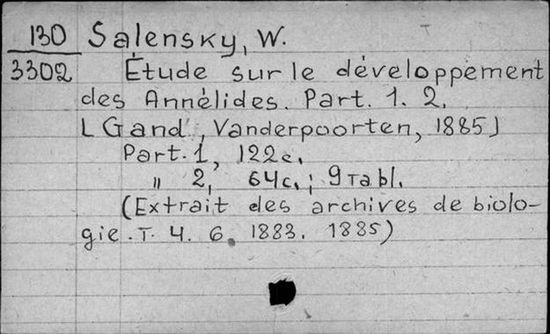 130 Salensky, W.
3302 Étude sur le développement
des Annélides. Part. 1. 2.
[Gand, Vanderpoorten, 1885]
Part. 1, 122c.
" 2, 64c.; 9 табl.
(Extrait des archives de biolo-
gie. T. 4. 6. 1883. 1885)